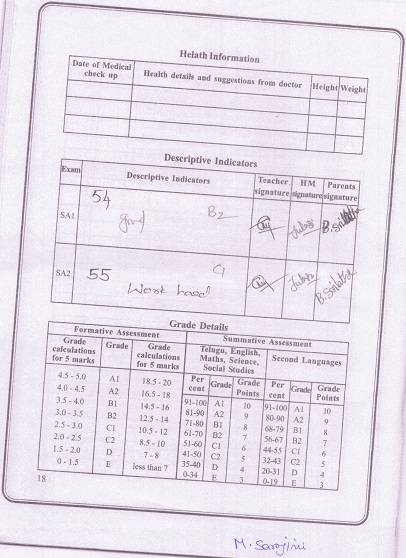 Helath Information
Date of Medical check up Health details and suggestions from doctor Height Weight
Descriptive Indicators
Exam Descriptive Indicators Teacher signature HM signature Parents signature
SA1 54 good B2
SA2 55 Work hard C1
Grade Details
Formative Assessment Summative Assessment
Grade calculations for 5 marks Grade Grade calculations for 5 marks Telugu, English, Maths, Science, Social Studies Second Languages
Per cent Grade Grade Points Per cent Grade Grade Points
4.5 - 5.0 A1 18.5 - 20 91-100 A1 10 91-100 A1 10
4.0 - 4.5 A2 16.5 - 18 81-90 A2 9 80-90 A2 9
3.5 - 4.0 B1 14.5 - 16 71-80 B1 8 68-79 B1 8
3.0 - 3.5 B2 12.5 - 14 61-70 B2 7 56-67 B2 7
2.5 - 3.0 C1 10.5 - 12 51-60 C1 6 44-55 C1 6
2.0 - 2.5 C2 8.5 - 10 41-50 C2 5 32-43 C2 5
1.5 - 2.0 D 7 - 8 35-40 D 4 20-31 D 4
0 - 1.5 E less than 7 0-34 E 3 0-19 E 3
18
M. Sarojini